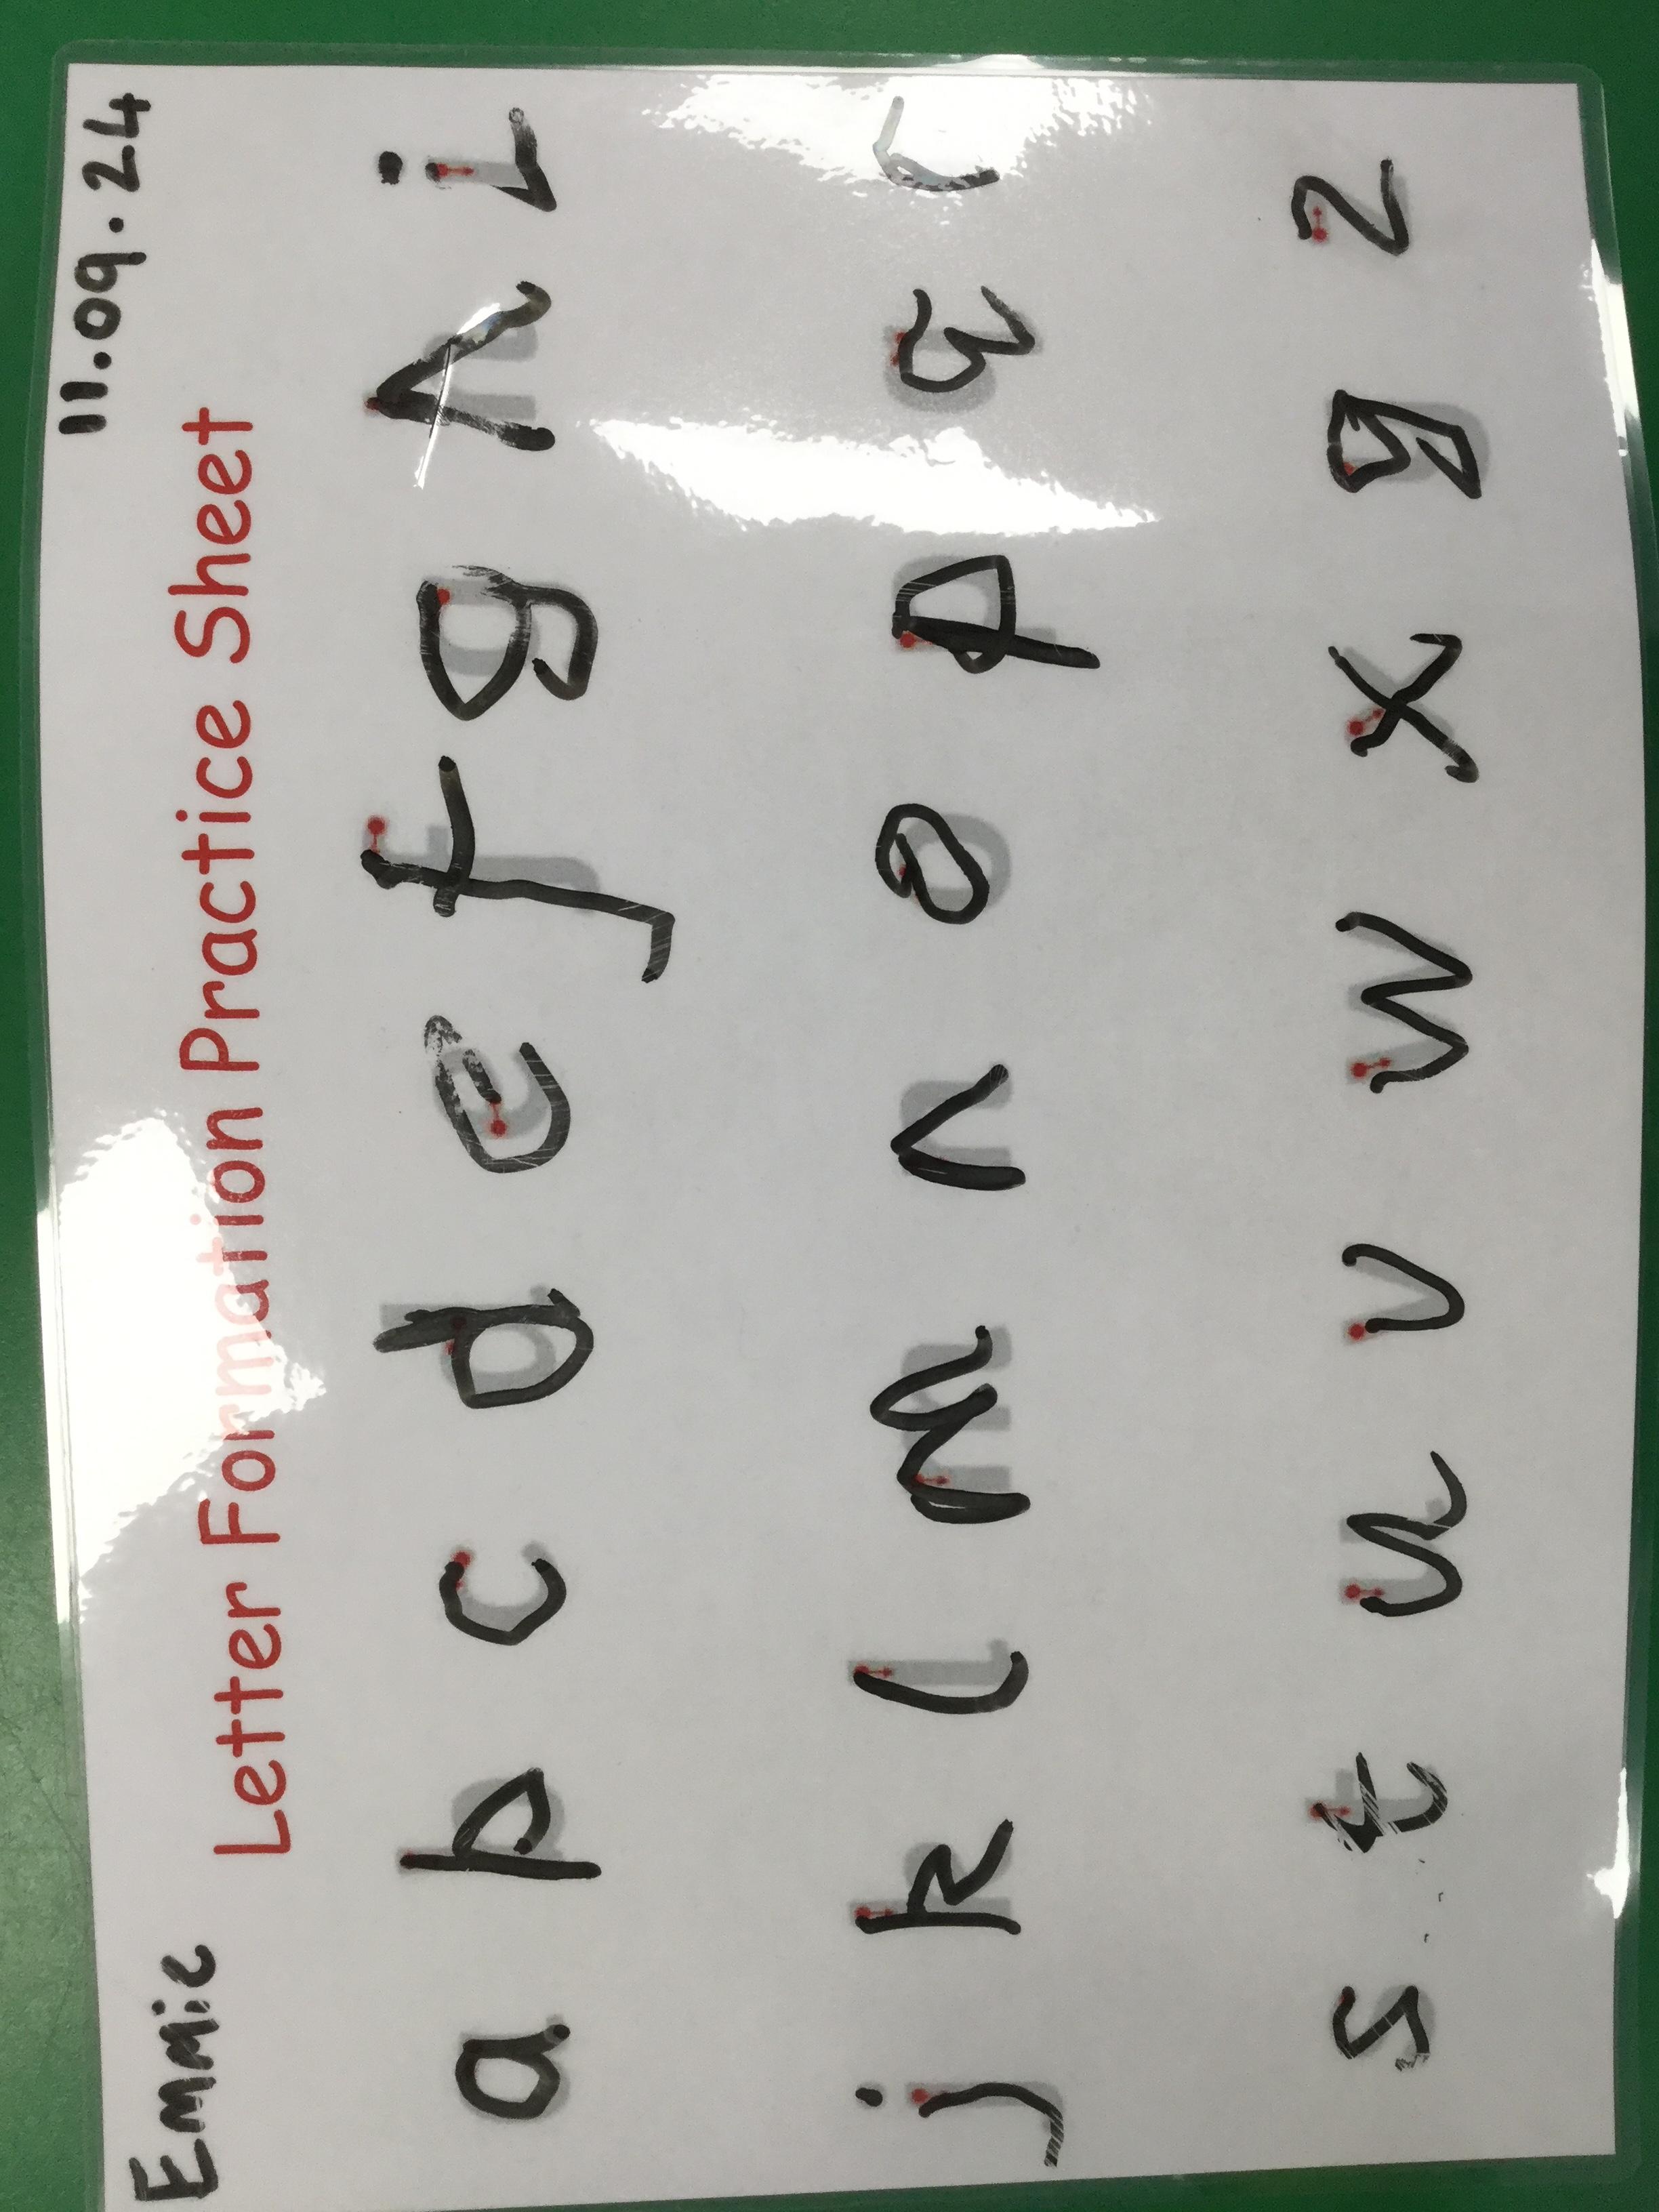 Emmie 11.09.24
Letter Formation Practice Sheet
a b c d e f g h i
j k l m n o p q r
s t u v w x y z